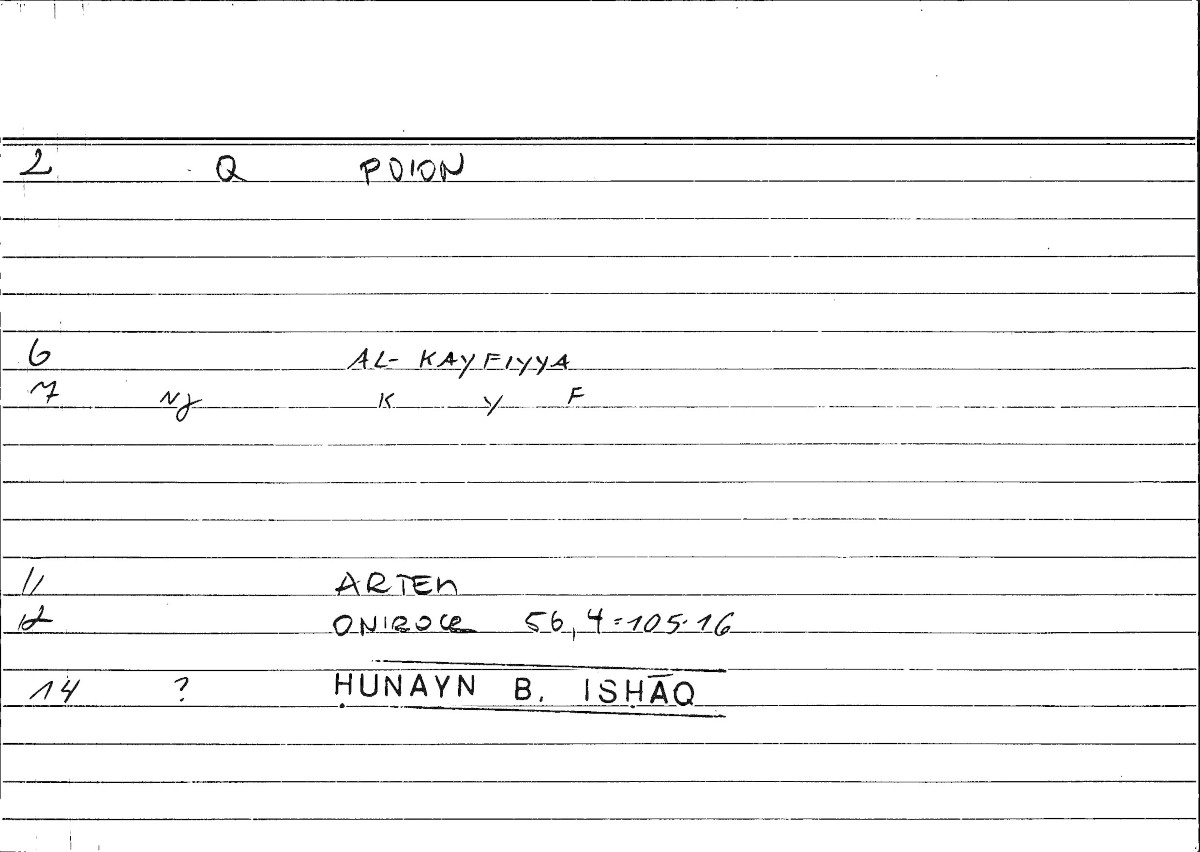 2 Q POION
6 AL- KAYFIYYA
7 Ng K Y F
11 ARTEM
12 ONIROCR 56,4=105.16
14 ? ḤUNAYN B. ISḤĀQ